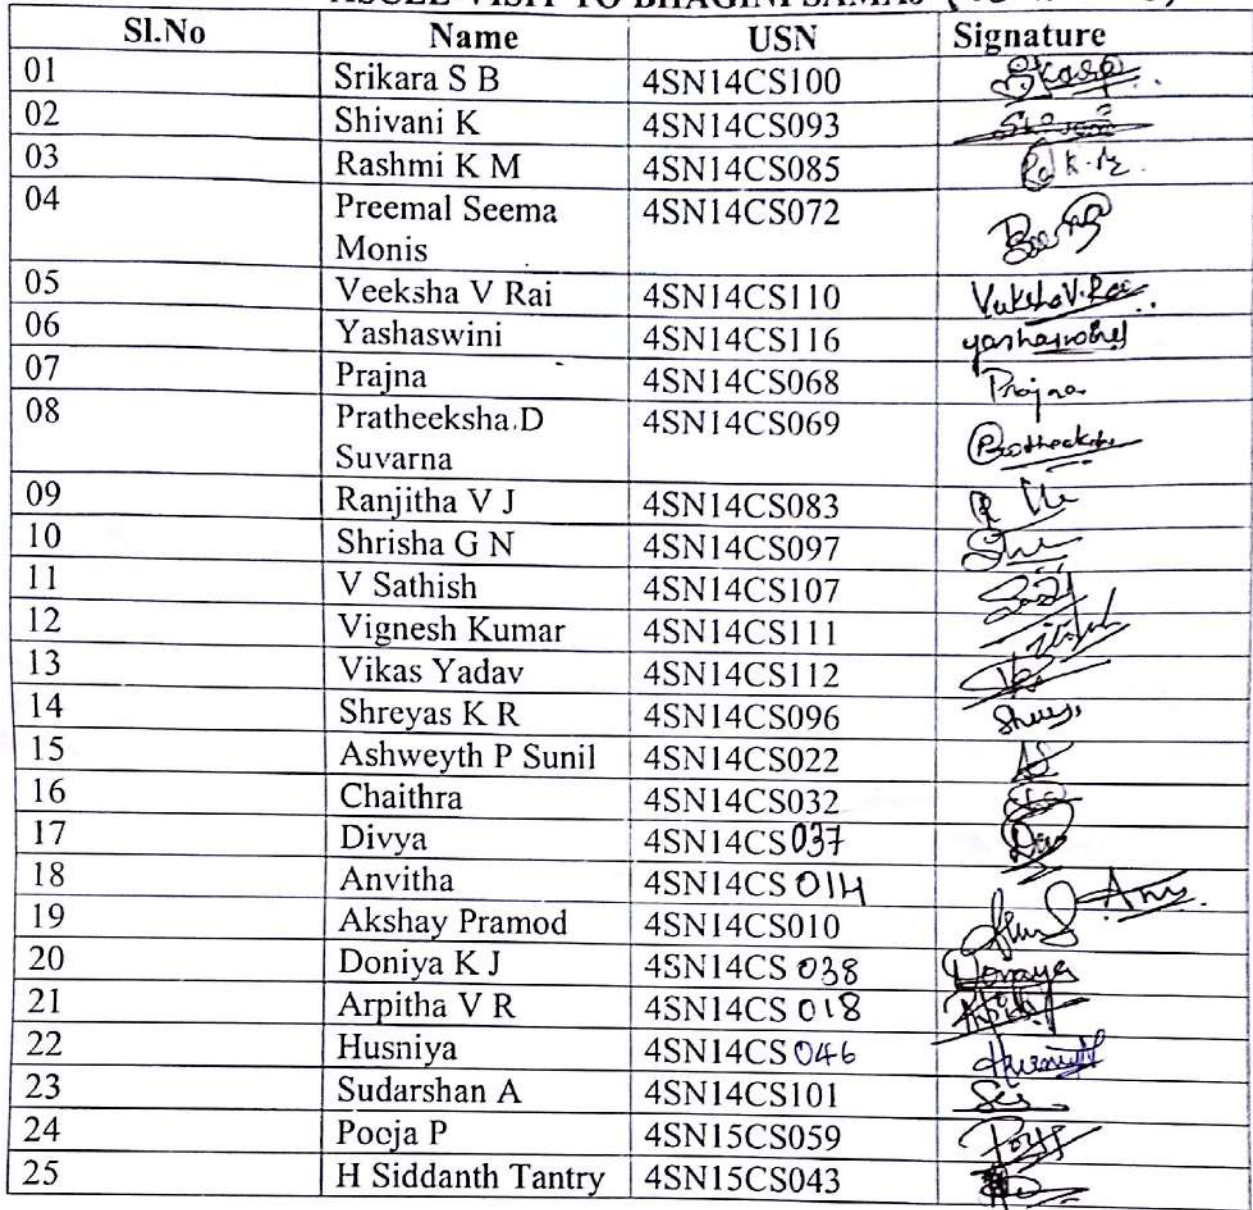 VISIT TO BHAGINI SAMAJ
Sl.No Name USN Signature
01 Srikara S B 4SN14CS100
02 Shivani K 4SN14CS093 Shivani
03 Rashmi K M 4SN14CS085
04 Preemal Seema 4SN14CS072
Monis
05 Veeksha V Rai 4SN14CS110 Veeksha V. Rai
06 Yashaswini 4SN14CS116 yashaswini
07 Prajna 4SN14CS068 Prajna
08 Pratheeksha.D 4SN14CS069
Suvarna
09 Ranjitha V J 4SN14CS083
10 Shrisha G N 4SN14CS097
11 V Sathish 4SN14CS107
12 Vignesh Kumar 4SN14CS111
13 Vikas Yadav 4SN14CS112
14 Shreyas K R 4SN14CS096
15 Ashweyth P Sunil 4SN14CS022
16 Chaithra 4SN14CS032
17 Divya 4SN14CS037
18 Anvitha 4SN14CS 014
19 Akshay Pramod 4SN14CS010
20 Doniya K J 4SN14CS 038
21 Arpitha V R 4SN14CS 018
22 Husniya 4SN14CS 046
23 Sudarshan A 4SN14CS101
24 Pooja P 4SN15CS059
25 H Siddanth Tantry 4SN15CS043